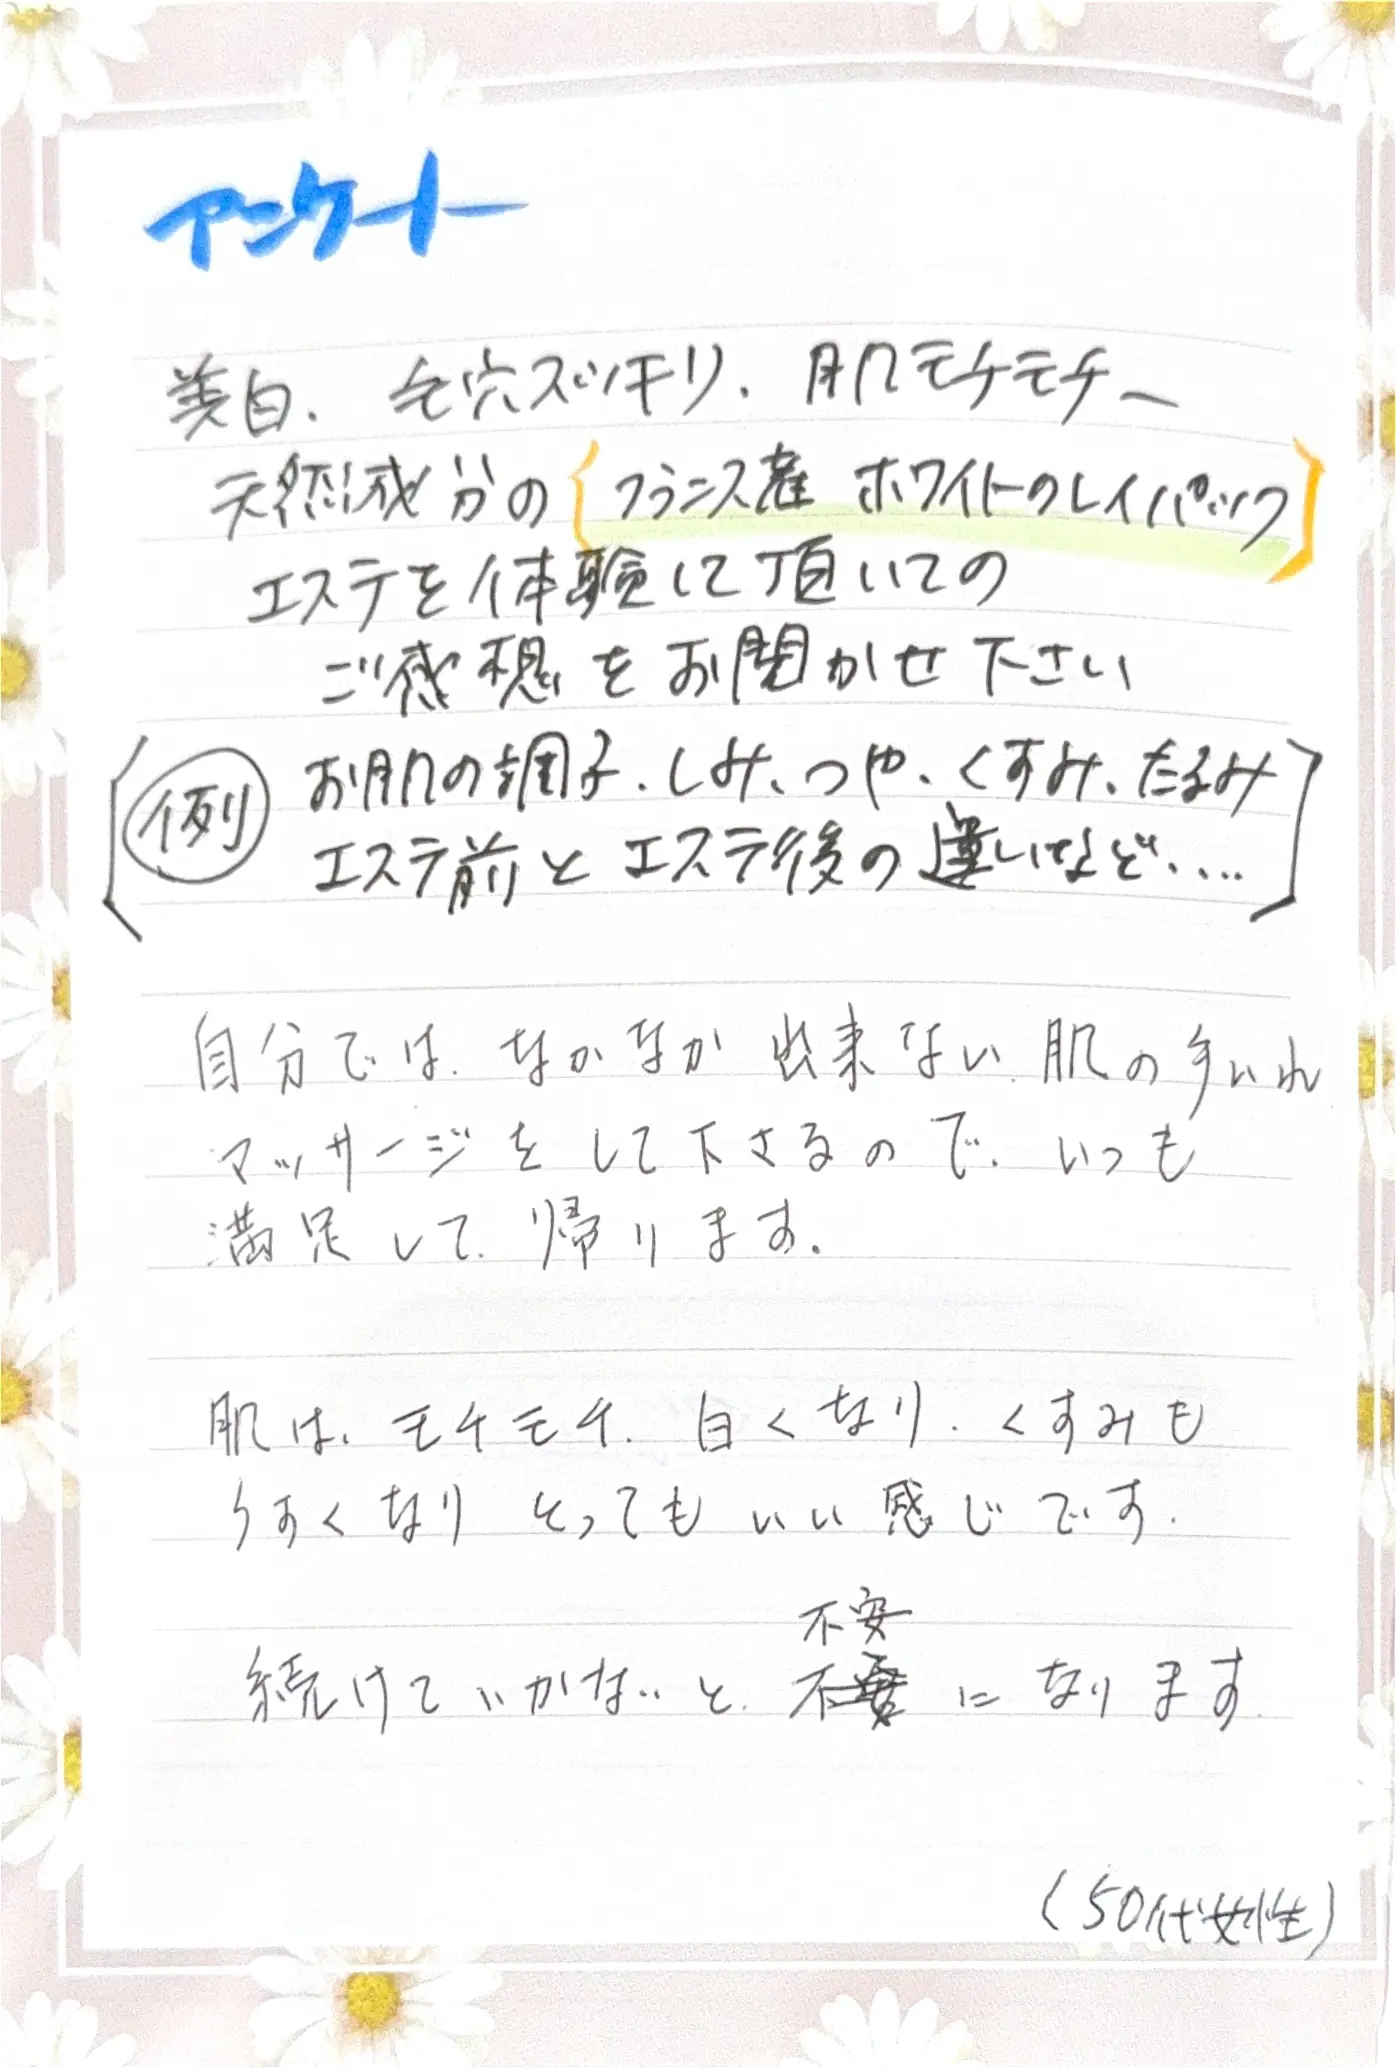 アンケート
美白、毛穴スッキリ、肌モチモチ〜
天然成分の〔フランス産 ホワイトクレイパック〕
エステを体験して頂いての
ご感想をお聞かせ下さい
〔例 お肌の調子、しみ、つや、くすみ、たるみ
エステ前とエステ後の違いなど、...〕
自分では、なかなか出来ない、肌の手いれ
マッサージをして下さるので、いつも
満足して、帰ります。
肌は、モチモチ、白くなり、くすみも
うすくなり とってもいい感じです。
不安
続けていかないと、不 になります。
(50代女性)